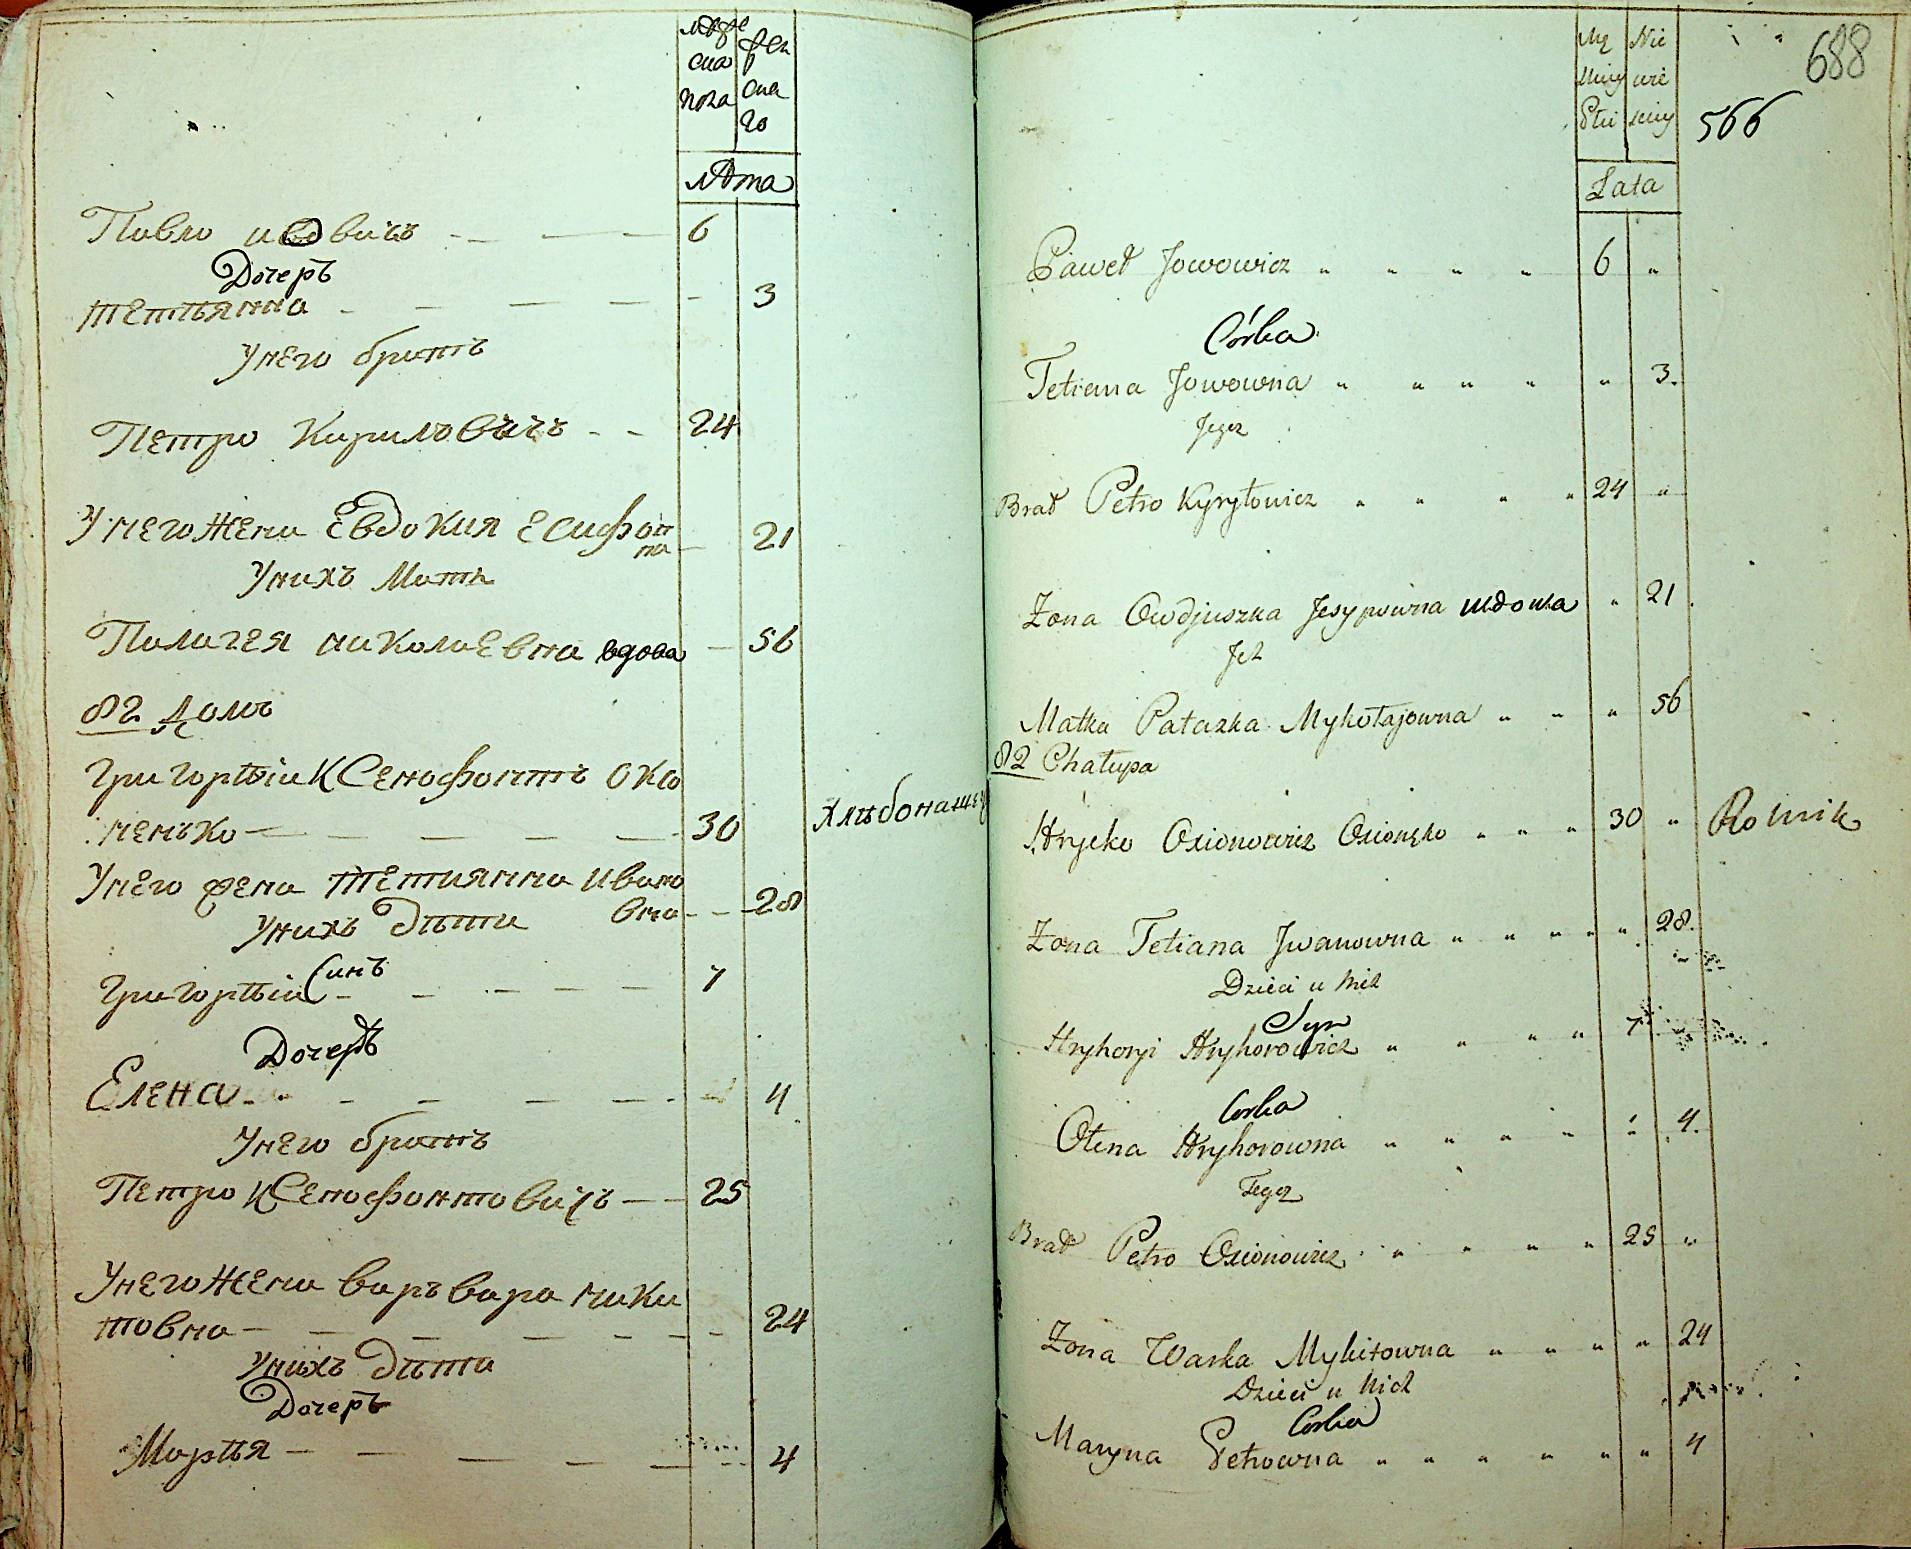 муже
ска
пола
жен
ска
го
лѣта
Павло иовичъ 6
Дочеръ
тетьянна 3
Унего братъ
Петро Кириловичъ 24
Унего Жена Евдокия Есифон
на 21
Унихъ Мать
Палагея николаевна вдова 56
82 Домъ
Григорѣй КСенофонтъ Оксю
ненько 30 хлѣбопашец
Унего жена тетиянна Ивано
вна 28
Унихъ дѣти
Синъ
Григорѣй 7
Дочерѣ
Елена 4
Унего братъ
Петро КСенофонтовичъ 25
Унего Жена варъвара мики
товна 24
Унихъ дѣти
Дочеръ
Марѣя 4
688
566
Mę
skiey
Płci
Nie
wie
sciey
Lata
Paweł Jowowicz 6
Córka
Tetiana Jowowna 3.
Jego
Brat Petro Kyryłowicz 24
Żona Owdjuszka Jesypowna wdowa 21
Ich
Matka Patazka Mykołajowna 56
82 Chałupa
Hrycko Oxionowicz Oxionęko 30 Rolnik
Żona Tetiana Jwanowna 28.
Dzieci u Nich
Syn
Hryhoryi Hryhorowicz 7
Corka
Ołena Hryhorowna 4.
Jego
Brat Petro Oxionowicz 25
Żona Warka Mykitowna 24
Dzieci u Nich
Corka
Maryna Petrowna 4